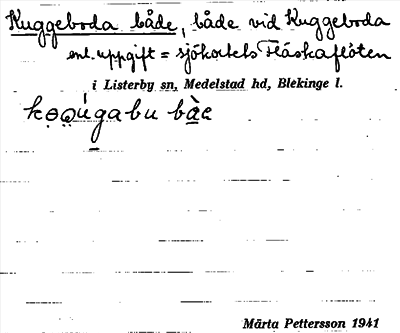 Kuggeboda både, både vid Kuggeboda
enl. uppgift = sjökortets Fläskaflöten
i Listerby sn, Medelstad hd, Blekinge l.
Märta Pettersson 1941